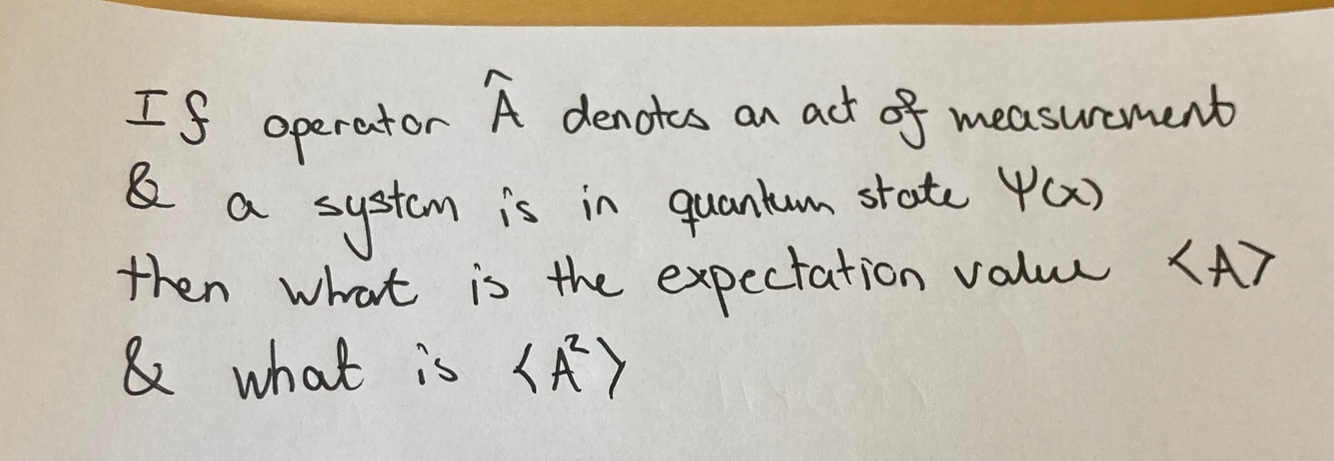 If operator Â denotes an act of measurement
& a system is in quantum state Ψ(x)
then what is the expectation value <A>
& what is <A²>